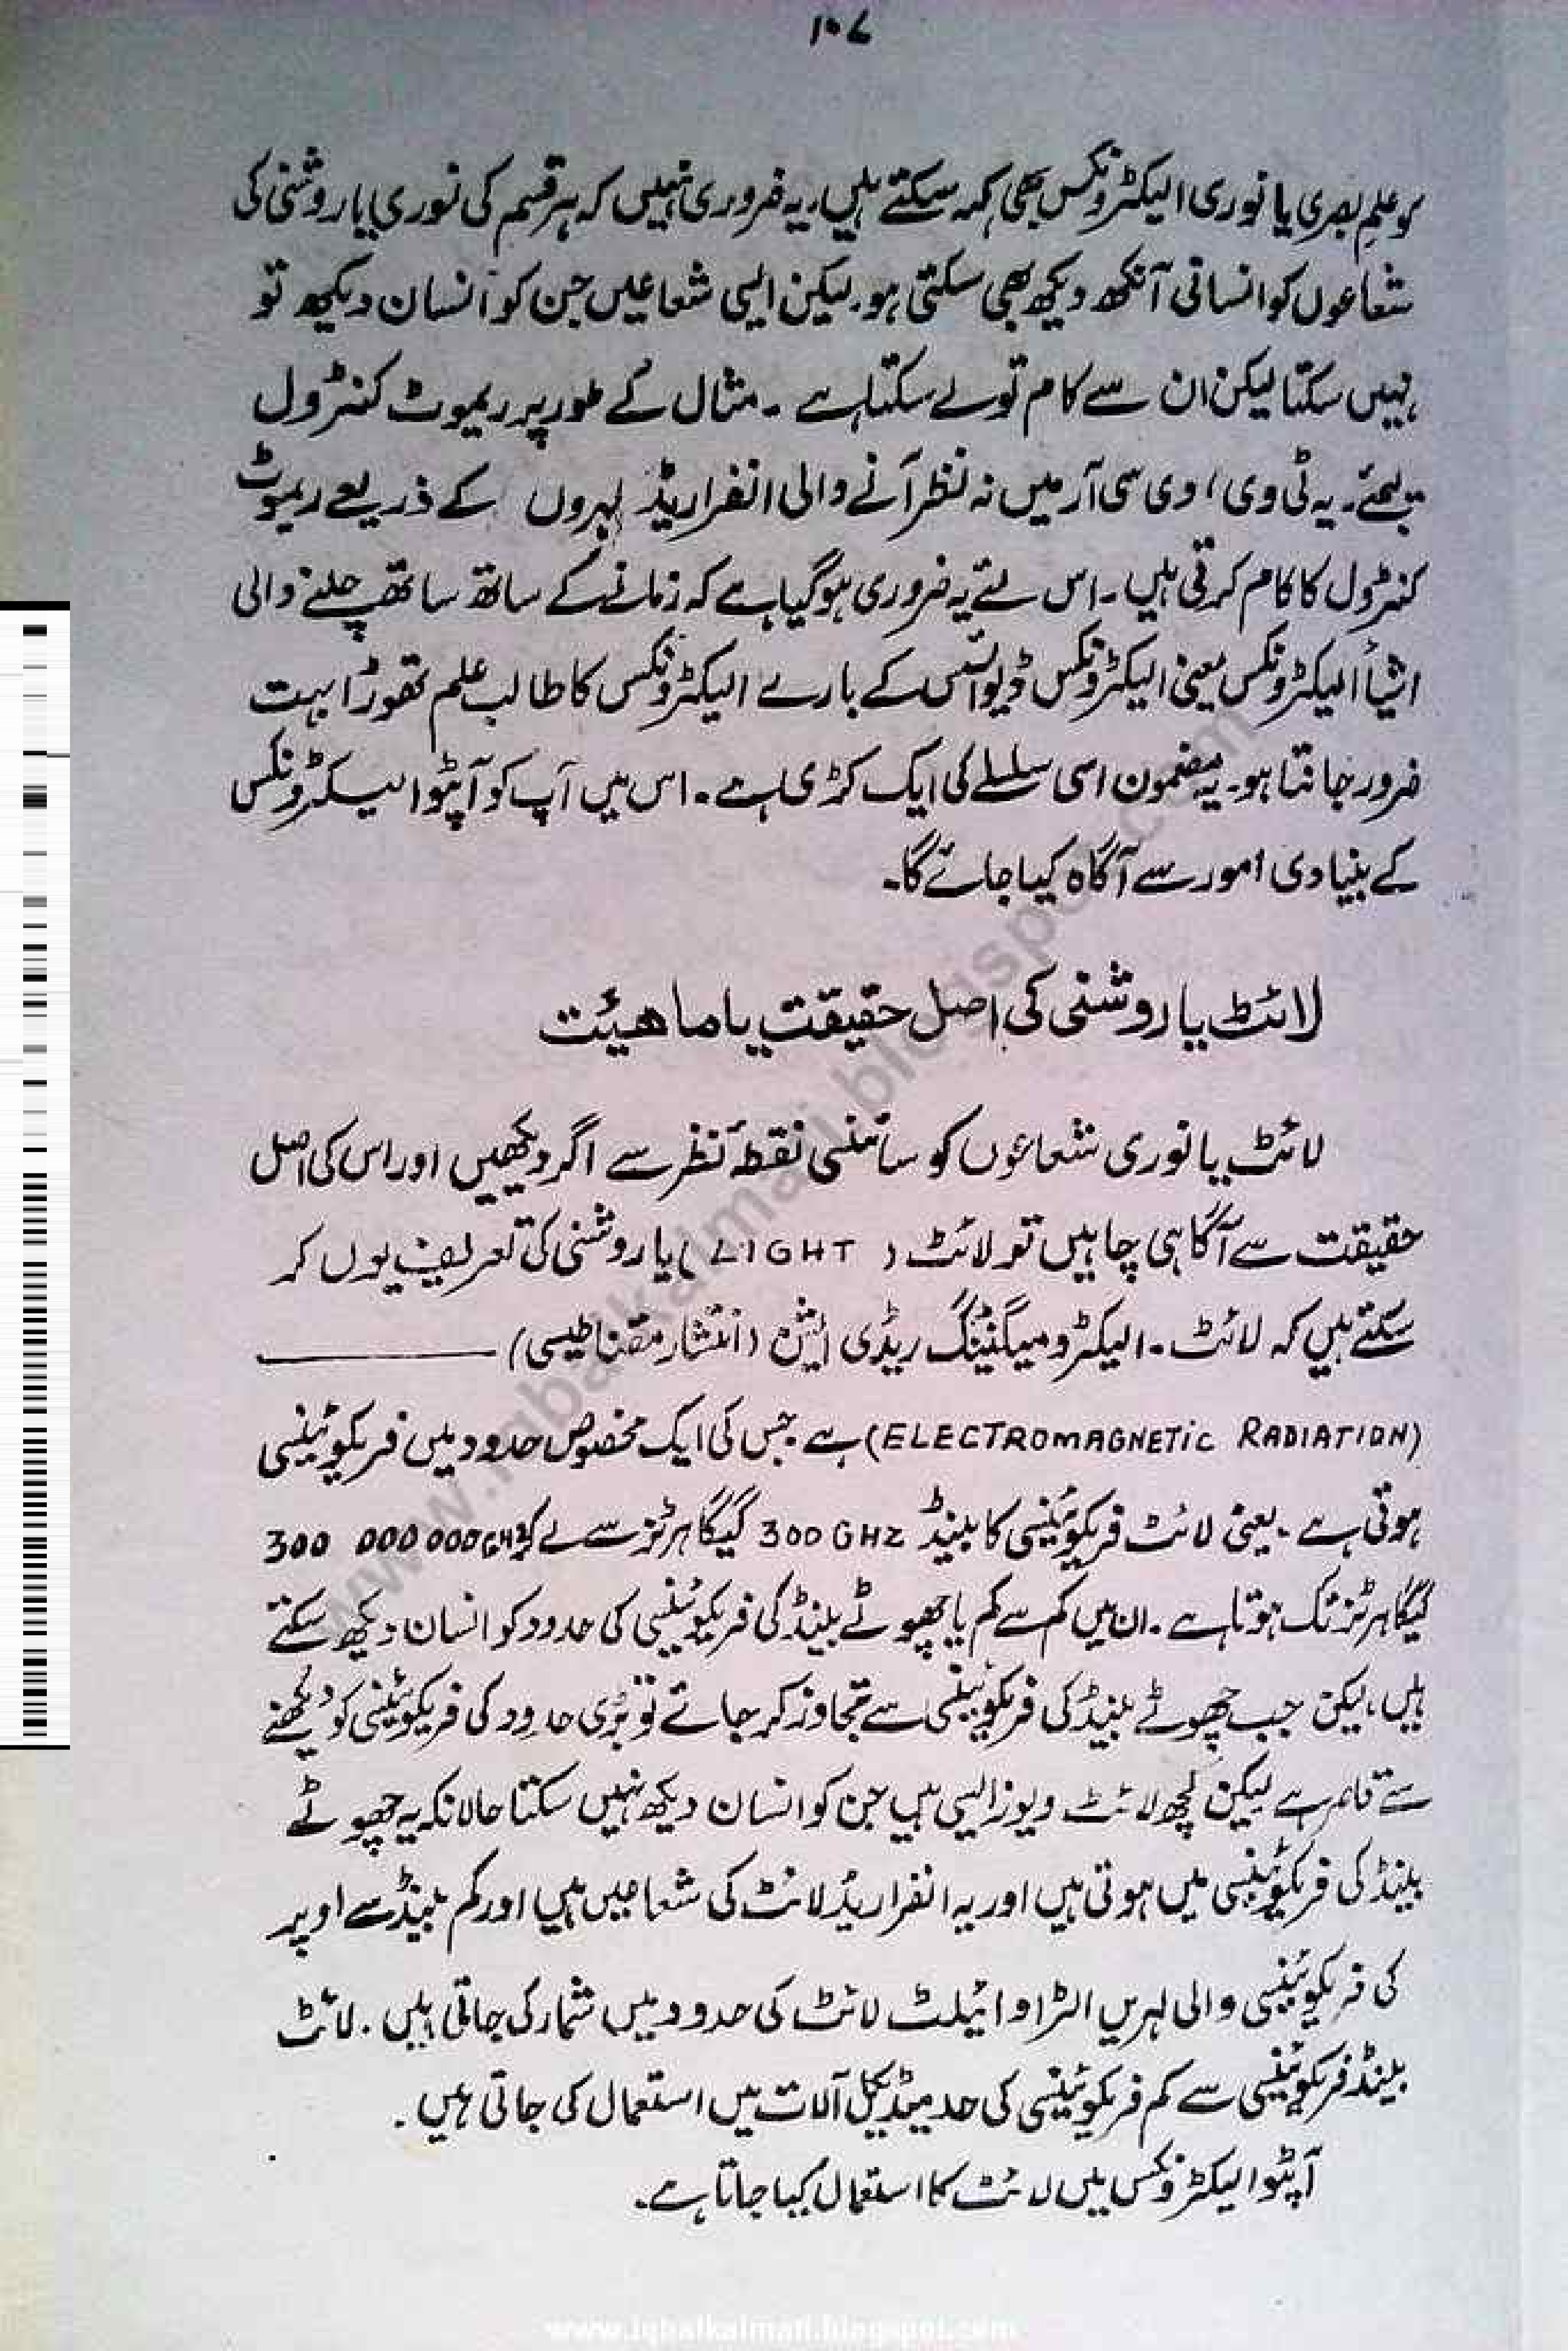 ۱۰۷
کو علمِ بصری یا نوری الیکٹرونکس بھی کہہ سکتے ہیں۔ یہ ضروری نہیں کہ ہر قسم کی نوری یا روشنی کی
شعاعوں کو انسانی آنکھ دیکھ بھی سکتی ہو۔ لیکن ایسی شعاعیں جن کو انسان دیکھ تو
نہیں سکتا لیکن ان سے کام تو لے سکتا ہے ۔ مثال کے طور پر ریموٹ کنٹرول
لیجئے۔ یہ ٹی وی، وی سی آر میں نہ نظر آنے والی انفراریڈ لہروں کے ذریعے ریموٹ
کنٹرول کا کام کرتی ہیں ۔ اس لئے یہ ضروری ہوگیا ہے کہ زمانے کے ساتھ ساتھ چلنے والی
اشیأ الیکٹرونکس یعنی الیکٹرونکس ڈیوائسس کے بارے الیکٹرونکس کا طالب علم تھوڑا بہت
ضرور جانتا ہو۔ یہ مضمون اسی سلسلے کی ایک کڑی ہے۔ اس میں آپ کو آپٹو الیکٹرونکس
کے بنیادی امور سے آگاہ کیا جائے گا۔
لائٹ یا روشنی کی اصل حقیقت یا ماھیئت
لائٹ یا نوری شعاعوں کو سائنسی نقطۂ نظر سے اگر دیکھیں اور اس کی اصل
حقیقت سے آگاہی چاہیں تو لائٹ ( LIGHT ) یا روشنی کی تعریف یوں کر
سکتے ہیں کہ لائٹ ۔ الیکٹرومیگنیٹنگ ریڈی ایشن (انتشار مقناطیسی) ـــــــــــــ
(ELECTROMAGNETiC RADIATION) ہے جس کی ایک مخصوص حدود میں فریکوئینسی
ہوتی ہے ۔ یعنی لائٹ فریکوئینسی کا بینڈ 300 GHz گیگا ہرٹز سے لے کر 300 000 000 GHz
گیگا ہرٹز تک ہوتا ہے ۔ ان میں کم سے کم یا چھوٹے بینڈ کی فریکوئینسی کی حدود کو انسان دیکھ سکتے
ہیں، لیکن جب چھوٹے بینڈ کی فریکوئینسی سے تجاوز کر جائے تو بڑی حدود کی فریکوئینسی کو دیکھنے
سے قاصر ہے لیکن کچھ لائٹ ویوز ایسی ہیں جن کو انسان دیکھ نہیں سکتا حالانکہ یہ چھوٹے
بینڈ کی فریکوئینسی میں ہوتی ہیں اور یہ انفراریڈ لائٹ کی شعاعیں ہیں اور کم بینڈ سے اوپر
کی فریکوئینسی والی لہریں الٹرا وائیلٹ لائٹ کی حدود میں شمار کی جاتی ہیں ۔ لائٹ
بینڈ فریکوئینسی سے کم فریکوئینسی کی حد میڈیکل آلات میں استعمال کی جاتی ھیں ۔
آپٹو الیکٹرونکس میں لائٹ کا استعمال کیا جاتا ہے۔
www.iqbalkalmati.blogspot.com
www.iqbalkalmati.blogspot.com